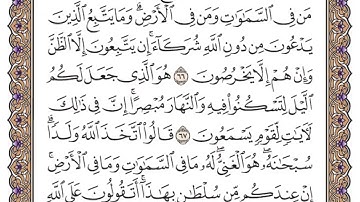 مَن فِي ٱلسَّمَٰوَٰتِ وَمَن فِي ٱلۡأَرۡضِۗ وَمَا يَتَّبِعُ ٱلَّذِينَ
يَدۡعُونَ مِن دُونِ ٱللَّهِ شُرَكَآءَۚ إِن يَتَّبِعُونَ إِلَّا ٱلظَّنَّ
وَإِنۡ هُمۡ إِلَّا يَخۡرُصُونَ ٦٦ هُوَ ٱلَّذِي جَعَلَ لَكُمُ
ٱلَّيۡلَ لِتَسۡكُنُواْ فِيهِ وَٱلنَّهَارَ مُبۡصِرًاۚ إِنَّ فِي ذَٰلِكَ
لَأٓيَٰتٖ لِّقَوۡمٖ يَسۡمَعُونَ ٦٧ قَالُواْ ٱتَّخَذَ ٱللَّهُ وَلَدٗاۗ
سُبۡحَٰنَهُۥۖ هُوَ ٱلۡغَنِيُّۖ لَهُۥ مَا فِي ٱلسَّمَٰوَٰتِ وَمَا فِي ٱلۡأَرۡضِۚ
إِنۡ عِندَكُم مِّن سُلۡطَٰنِۭ بِهَٰذَآۚ أَتَقُولُونَ عَلَى ٱللَّهِ